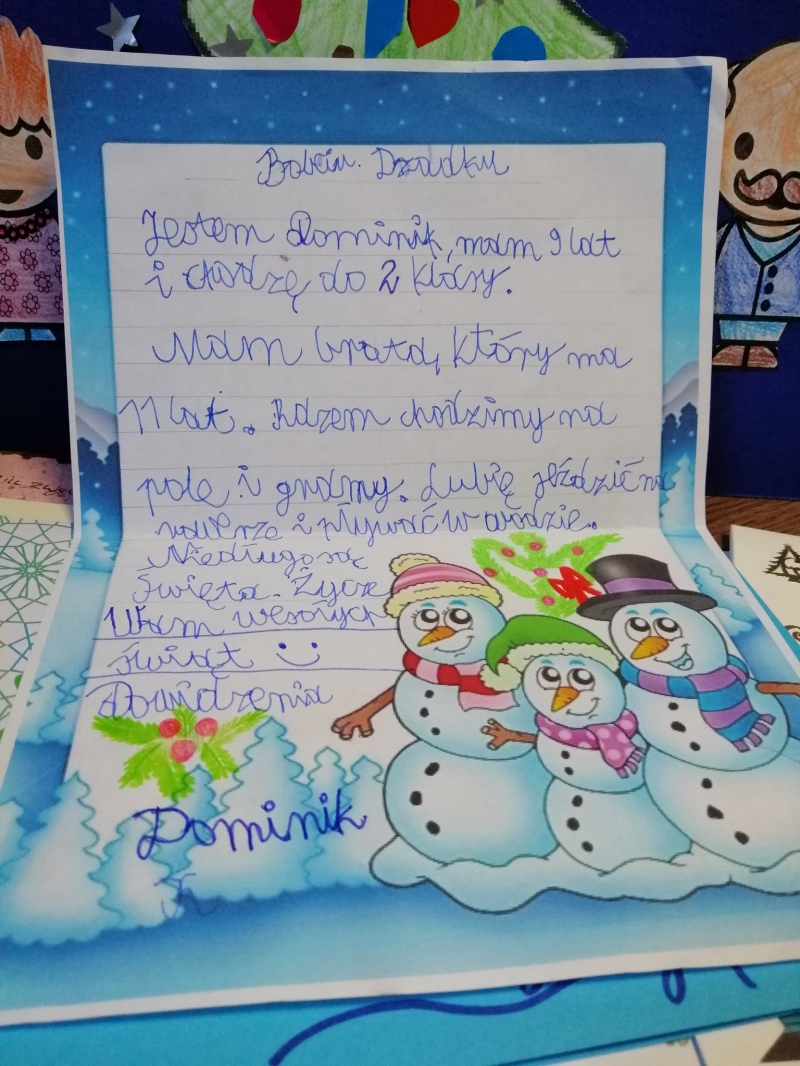 Babciu. Dziadku
Jestem Dominik, mam 9 lat
i chodzę do 2 klasy.
Mam brata, który ma
11 lat. Razem chodzimy na
pole i gramy. Lubię jeździć na
rowerze i pływać w wodzie.
Niedługo są
Święta. Życzę
Wam wesołych
świąt :)
Dowidzenia
Dominik